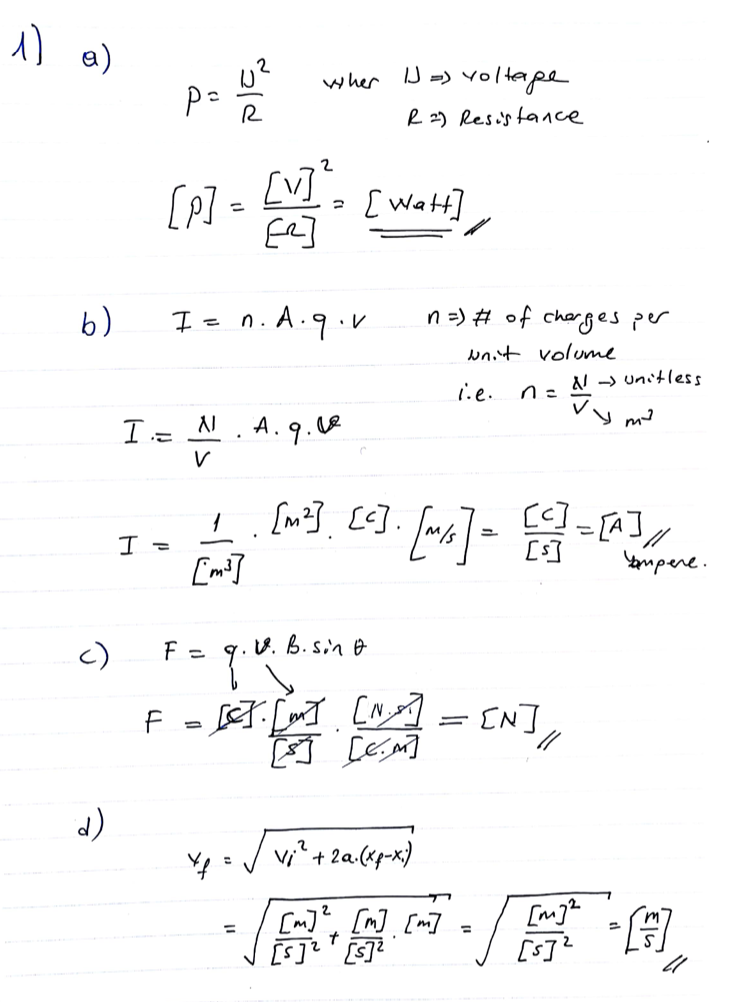 1) a)
P = U²/R wher U => voltage
R => Resistance
[P] = [V]²/[R] = [Watt] //
b) I = n. A. q. v n => # of charges per
unit volume
i.e. n = N/V → unitless
↘ m³
I = N/V . A. q. v
I = 1/[m³] . [m²]. [C]. [m/s] = [C]/[s] = [A] //
Ampere.
c) F = q. v. B. sin θ
F = [C]. [m]/[s] . [N.s]/[C.m] = [N] //
d)
Vf = √(Vi² + 2a.(xf-xi))
= √([m]²/[s]² + [m]/[s]² . [m]) = √([m]²/[s]²) = [m/s] //